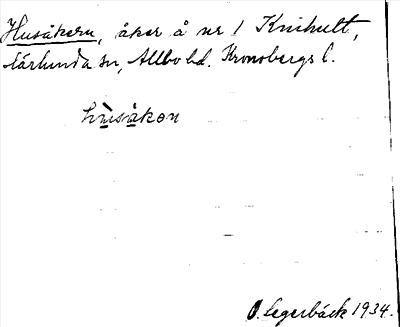 Husåkern, åker å nr 1 Knihult,
Härlunda sn, Allbo hd. Kronobergs l.
hùsåkən
O. Legerbäck 1934.